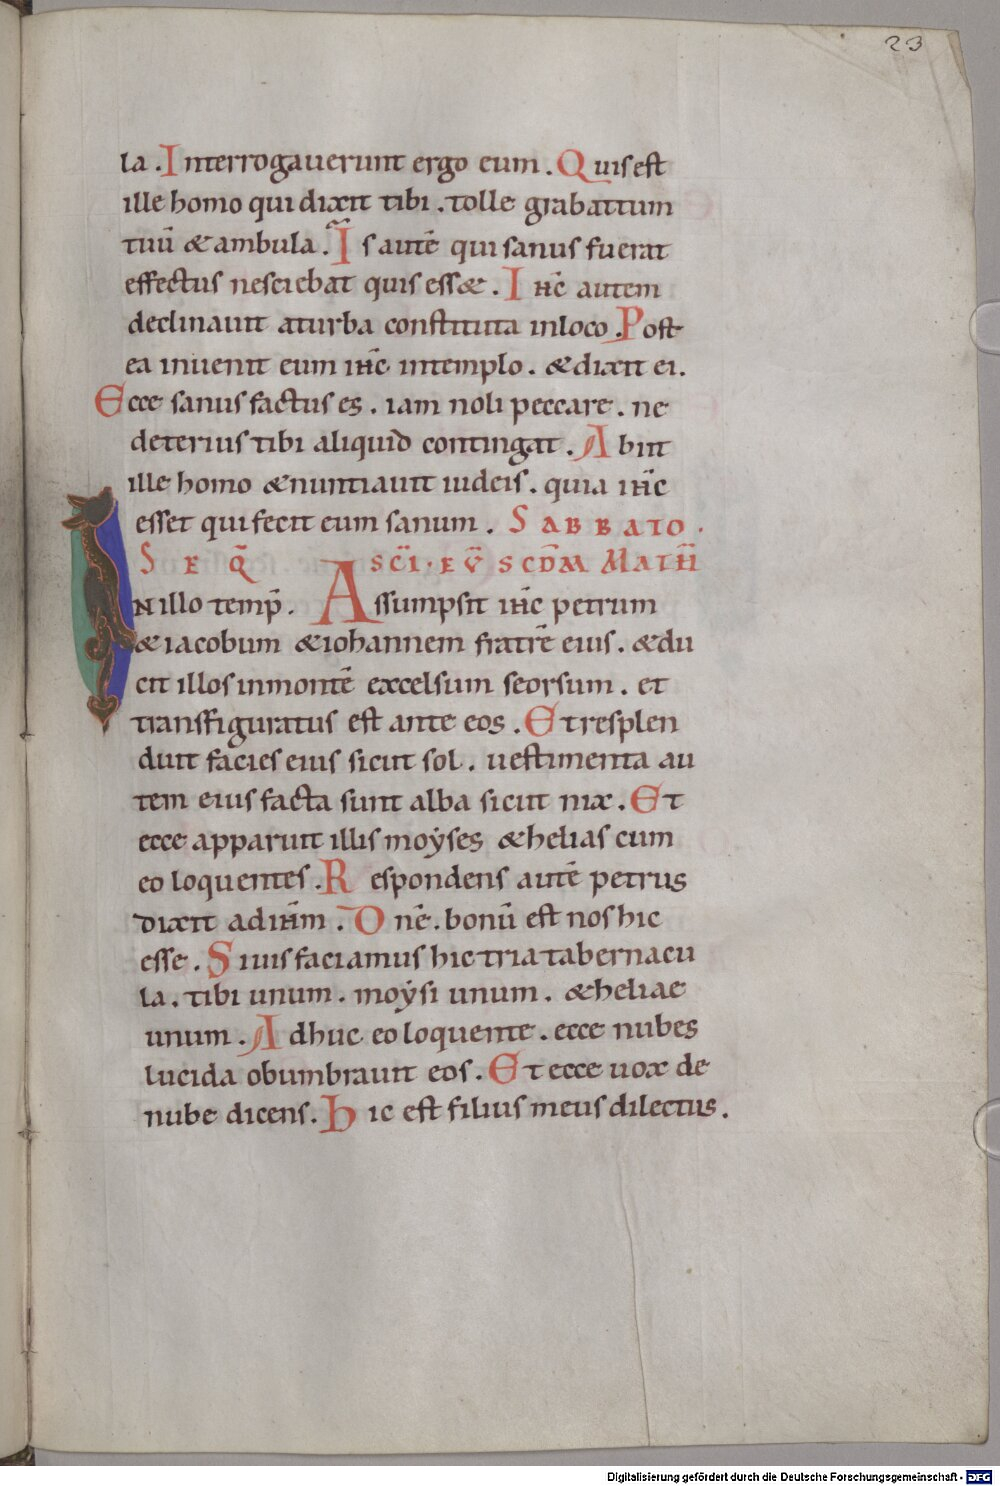 23
la. Interrogauerunt ergo eum. Quis est
ille homo qui dixit tibi. tolle grabattum
tuū & ambula. Is autē qui sanus fuerat
effectus nesciebat quis ess&. Ihc̄ autem
declinauit aturba constituta inloco. Post
ea inuenit eum ihc̄ intemplo. & dixit ei.
Ecce sanus factus es. iam noli peccare. ne
deterius tibi aliquid contingat. Abiit
ille homo & nuntiauit iudeis. quia ihc̄
esset qui fecit eum sanum. SABBATO.
SEQ̄ SC̄I. EV̄ SCDM̄ MATH̄
IN illo temp̄. Assumpsit ihc̄ petrum
& iacobum & iohannem fratrē eius. & du
cit illos inmontē excelsum seorsum. et
transfiguratus est ante eos. Et resplen
duit facies eius sicut sol. uestimenta au
tem eius facta sunt alba sicut nix. Et
ecce apparuit illis moẏses & helias cum
eo loquentes. Respondens autē petrus
dixit adihm̄. Dnē. bonū est nos hic
esse. Si uis faciamus hic tria tabernacu
la. tibi unum. moẏsi unum. & heliae
unum. Adhuc eo loquente. ecce nubes
lucida obumbrauit eos. Et ecce uox de
nube dicens. Hic est filius meus dilectus.
Digitalisierung gefördert durch die Deutsche Forschungsgemeinschaft - DFG